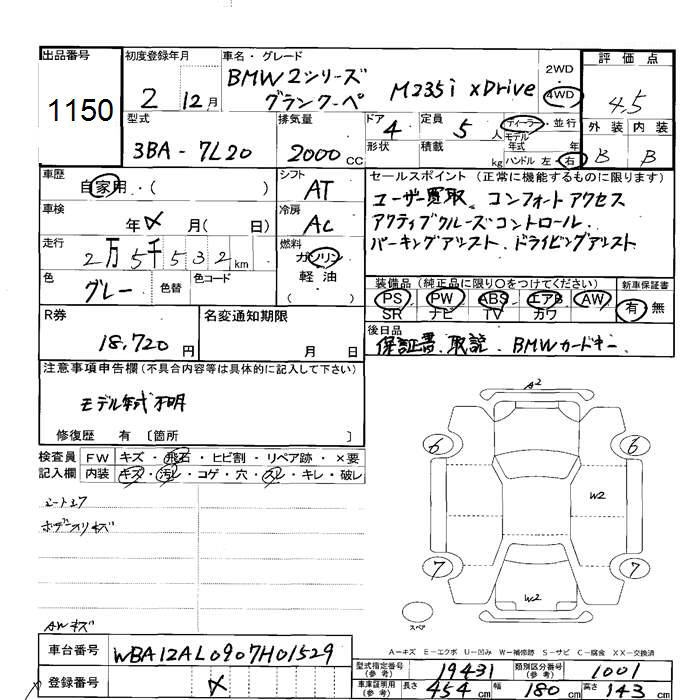 出品番号
1150
初度登録年月
2 12月
車名・グレード
BMW2シリーズ
グランクーペ M235i xDrive
2WD
4WD
評価点
4.5
外装 内装
B B
型式
3BA-7L20
排気量
2000 CC
ドア 4
形状
定員 5 人
積載 kg
ディーラー・並行
モデル
年式 年
ハンドル 左 右
車歴
自家用・( )
シフト
AT
車検
年 月( 日)
冷房
AC
走行
2万5千532km
燃料
ガソリン
軽油
( )
色
グレー
色替
色コード
セールスポイント (正常に機能するものに限ります)
ユーザー買取、コンフォートアクセス
アクティブクルーズコントロール、
パーキングアシスト、ドライビングアシスト
装備品(純正品に限り○をつけてください)
PS PW ABS エアB AW
SR ナビ TV カワ
新車保証書
有 無
R券
18,720円
名変通知期限
月 日
後日品
保証書、取説、BMWカードキー、
注意事項申告欄(不具合内容等は具体的に記入して下さい)
モデル年式不明
修復歴 有 〔箇所 〕
検査員
記入欄
FW キズ・飛石・ヒビ割・リペア跡・×要
内装 キズ・汚レ・コゲ・穴・スレ・キレ・破レ
AWキズ
A2
6 6
W2
7 7
W2
スペア
A=キズ E=エクボ U=凹み W=補修跡 S=サビ C=腐食 XX=交換済
車台番号
WBA12AL0907H01529
登録番号
型式指定番号
(参考)
19431
類別区分番号
(参考)
1001
車庫証明用
(参考)
長さ 454 cm 幅 180 cm 高さ 143 cm